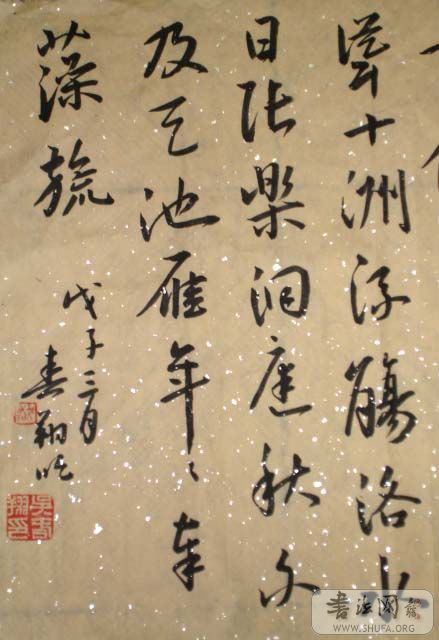 聳十洲浮觴洛水
日張樂洞庭秋不
及天池雁年々奉
藻旒
戊子三月
春翔
書法網
WWW.SHUFA.ORG